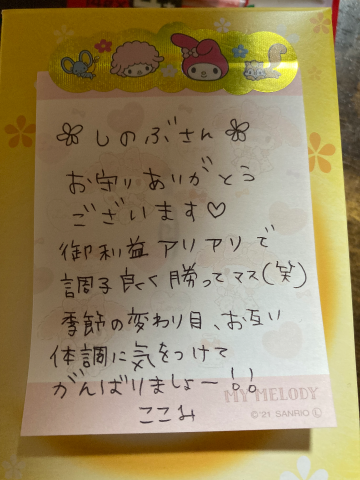 しのぶさん
お守りありがとう
ございます♡
御利益アリアリで
調子良く勝ってマス(笑)
季節の変わり目、お互い
体調に気をつけて
がんばりましょー!!
ここみ
MY MELODY
©'21 SANRIO Ⓛ